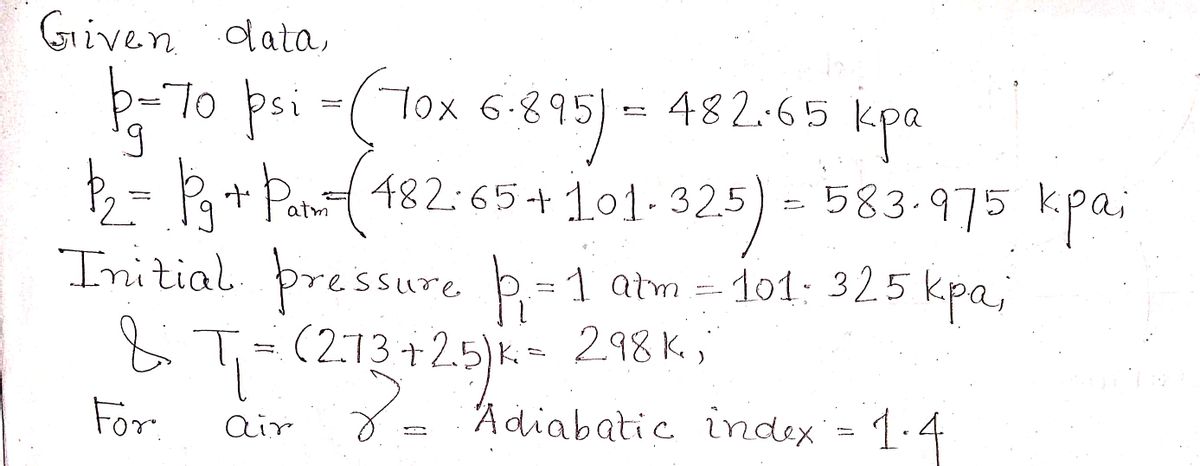 Given data,
p_g = 70 psi = (70 x 6.895) = 482.65 kpa
p_2 = p_g + p_atm = (482.65 + 101.325) = 583.975 kpa;
Initial pressure p_1 = 1 atm = 101.325 kpa;
& T_1 = (273 + 25)K = 298 K;
For air γ = Adiabatic index = 1.4